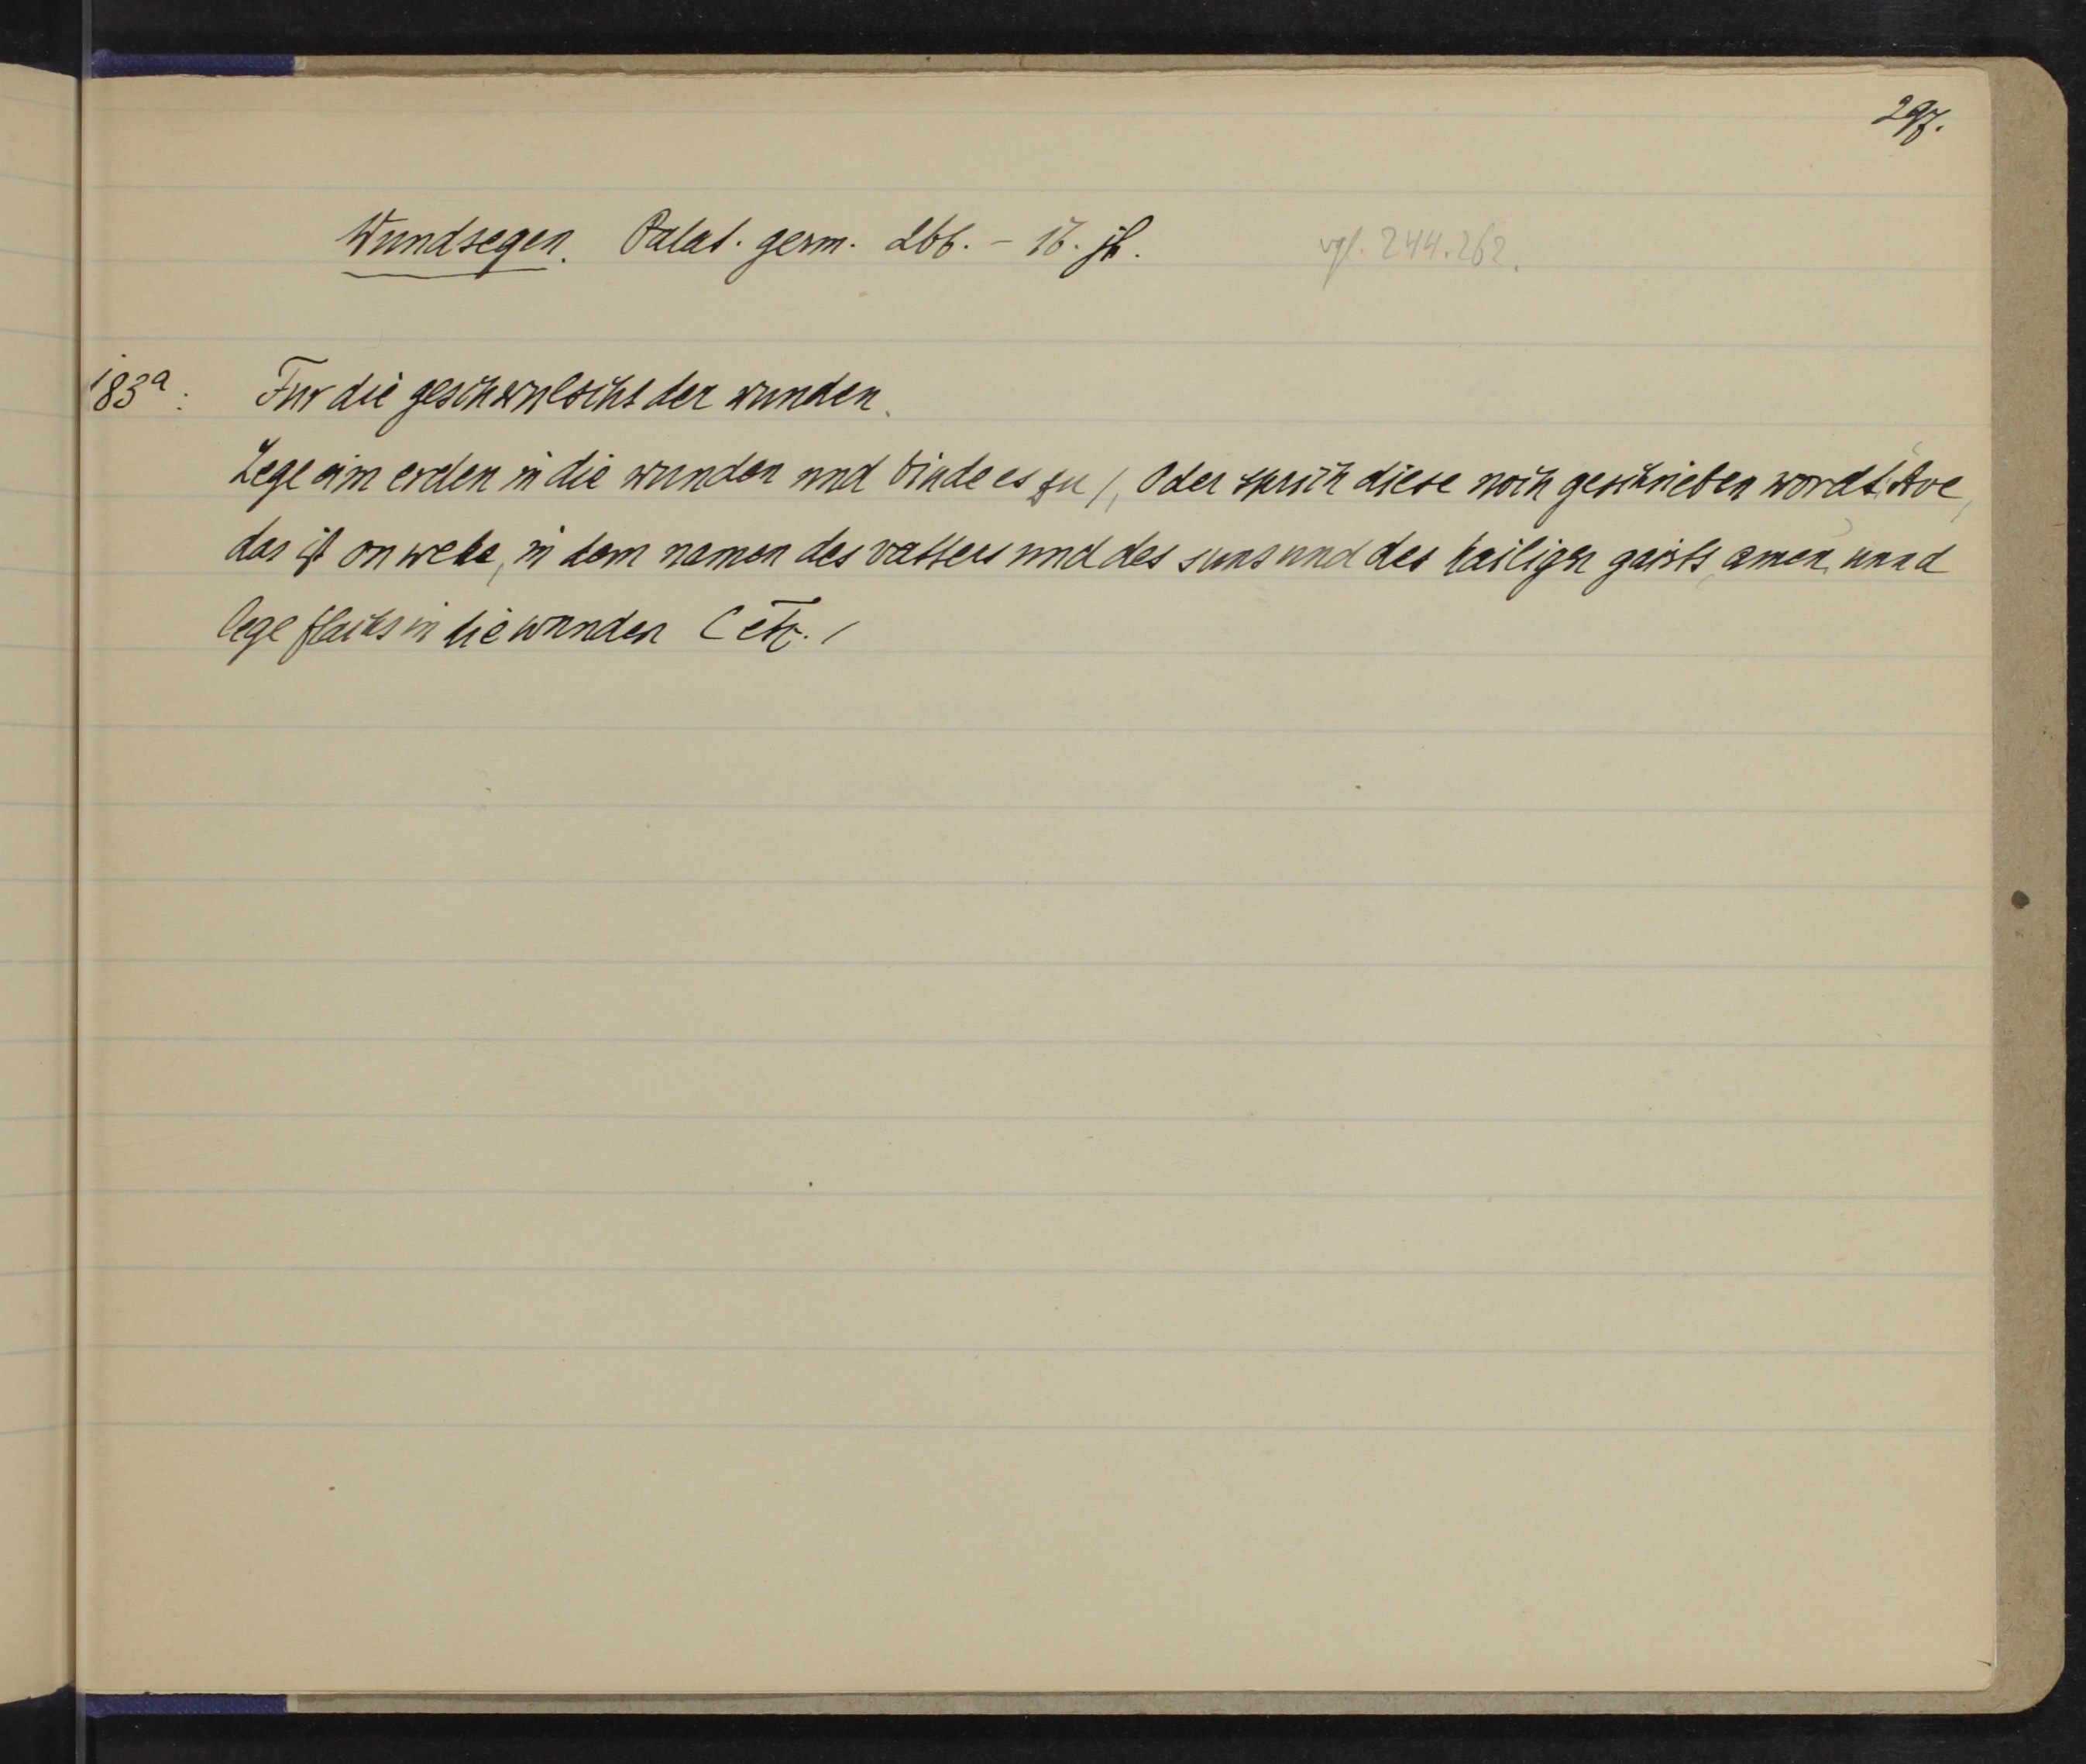 297.
Wundsegen. Palat. germ. 266. – 16. jh. vgl. 244. 262.
183a: Fur die geschwulscht der wunden.
Lege ein erden in die wunden und binde es zu /, Oder sprich diese noch geschrieben wordt: Ave,
das ist on wehe, in dem namen des vatters und des suns und des hailigen gaists, amen, unnd
lege flachs in die wunden (etc. /